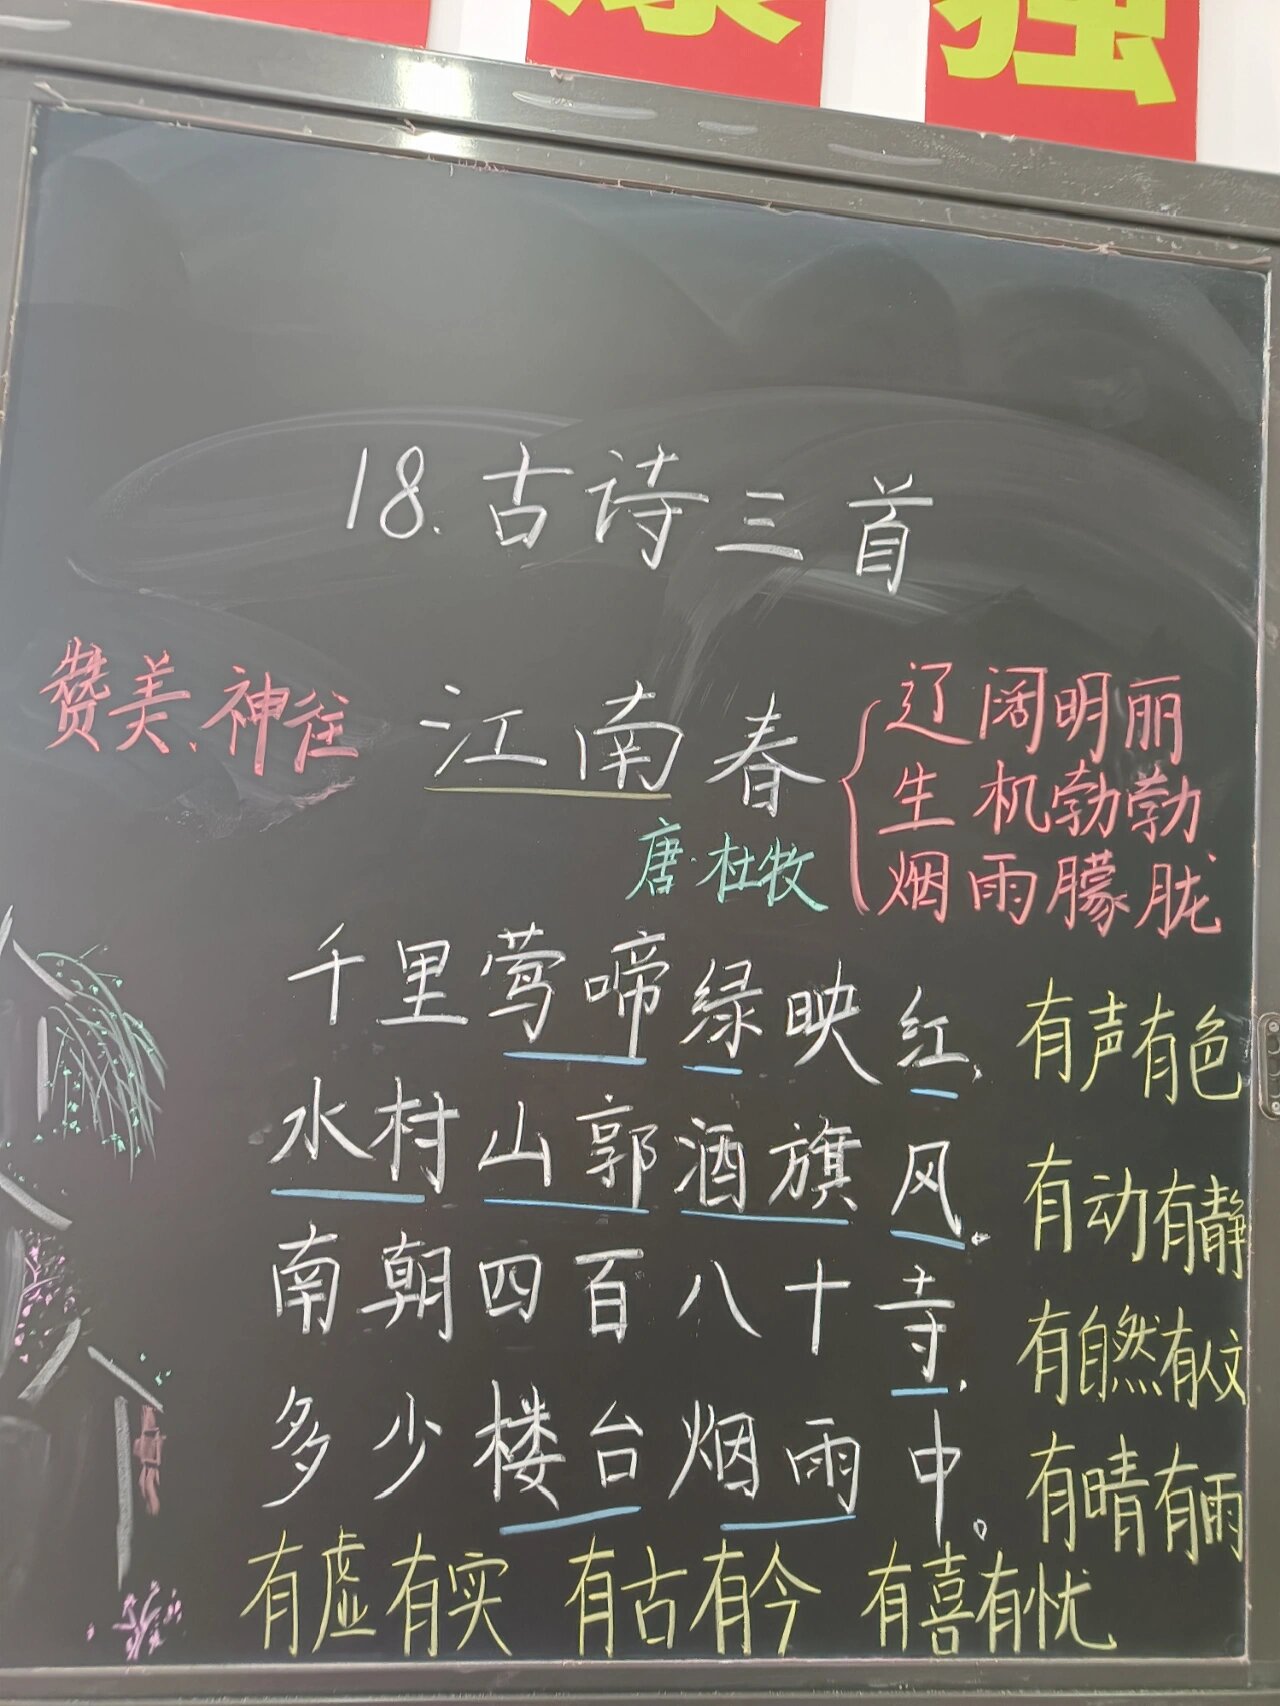 强
18.古诗三首
赞美、神往
江南春
唐·杜牧
辽阔明丽
生机勃勃
烟雨朦胧
千里莺啼绿映红,
水村山郭酒旗风.
南朝四百八十寺,
多少楼台烟雨中。
有声有色
有动有静
有自然有人文
有晴有雨
有虚有实 有古有今 有喜有忧